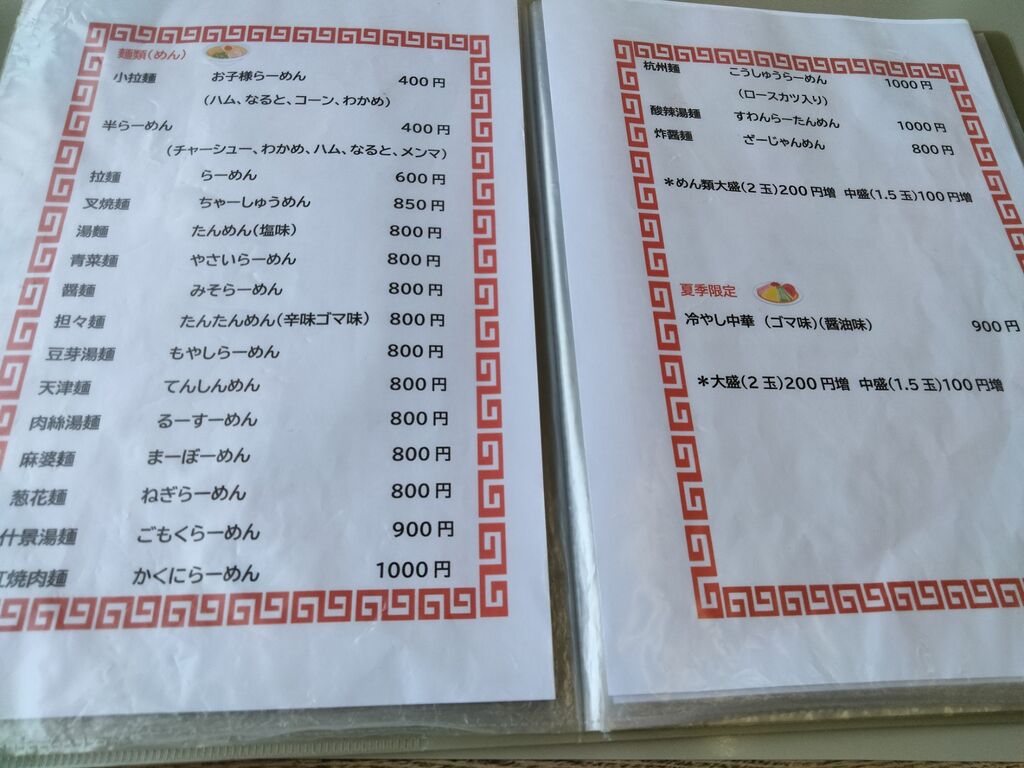 麺類(めん)
小拉麺 お子様らーめん 400円
(ハム、なると、コーン、わかめ)
半らーめん 400円
(チャーシュー、わかめ、ハム、なると、メンマ)
拉麺 らーめん 600円
叉焼麺 ちゃーしゅうめん 850円
湯麺 たんめん(塩味) 800円
青菜麺 やさいらーめん 800円
醬麺 みそらーめん 800円
担々麺 たんたんめん(辛味ゴマ味) 800円
豆芽湯麺 もやしらーめん 800円
天津麺 てんしんめん 800円
肉絲湯麺 るーすーめん 800円
麻婆麺 まーぼーめん 800円
葱花麺 ねぎらーめん 800円
什景湯麺 ごもくらーめん 900円
紅焼肉麺 かくにらーめん 1000円
杭州麺 こうしゅうらーめん 1000円
(ロースカツ入り)
酸辣湯麺 すわんらーたんめん 1000円
炸醬麺 ざーじゃんめん 800円
*めん類大盛(2玉)200円増 中盛(1.5玉)100円増
夏季限定
冷やし中華 (ゴマ味)(醬油味) 900円
*大盛(2玉)200円増 中盛(1.5玉)100円増